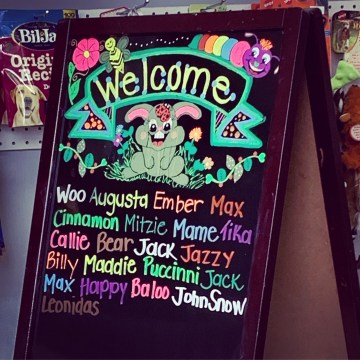 Bil-Jac
Original
Recipe
Welcome
Woo Augusta Ember Max
Cinnamon Mitzie Mame Tika
Callie Bear Jack Jazzy
Billy Maddie Puccinni Jack
Max Happy Baloo John Snow
Leonidas